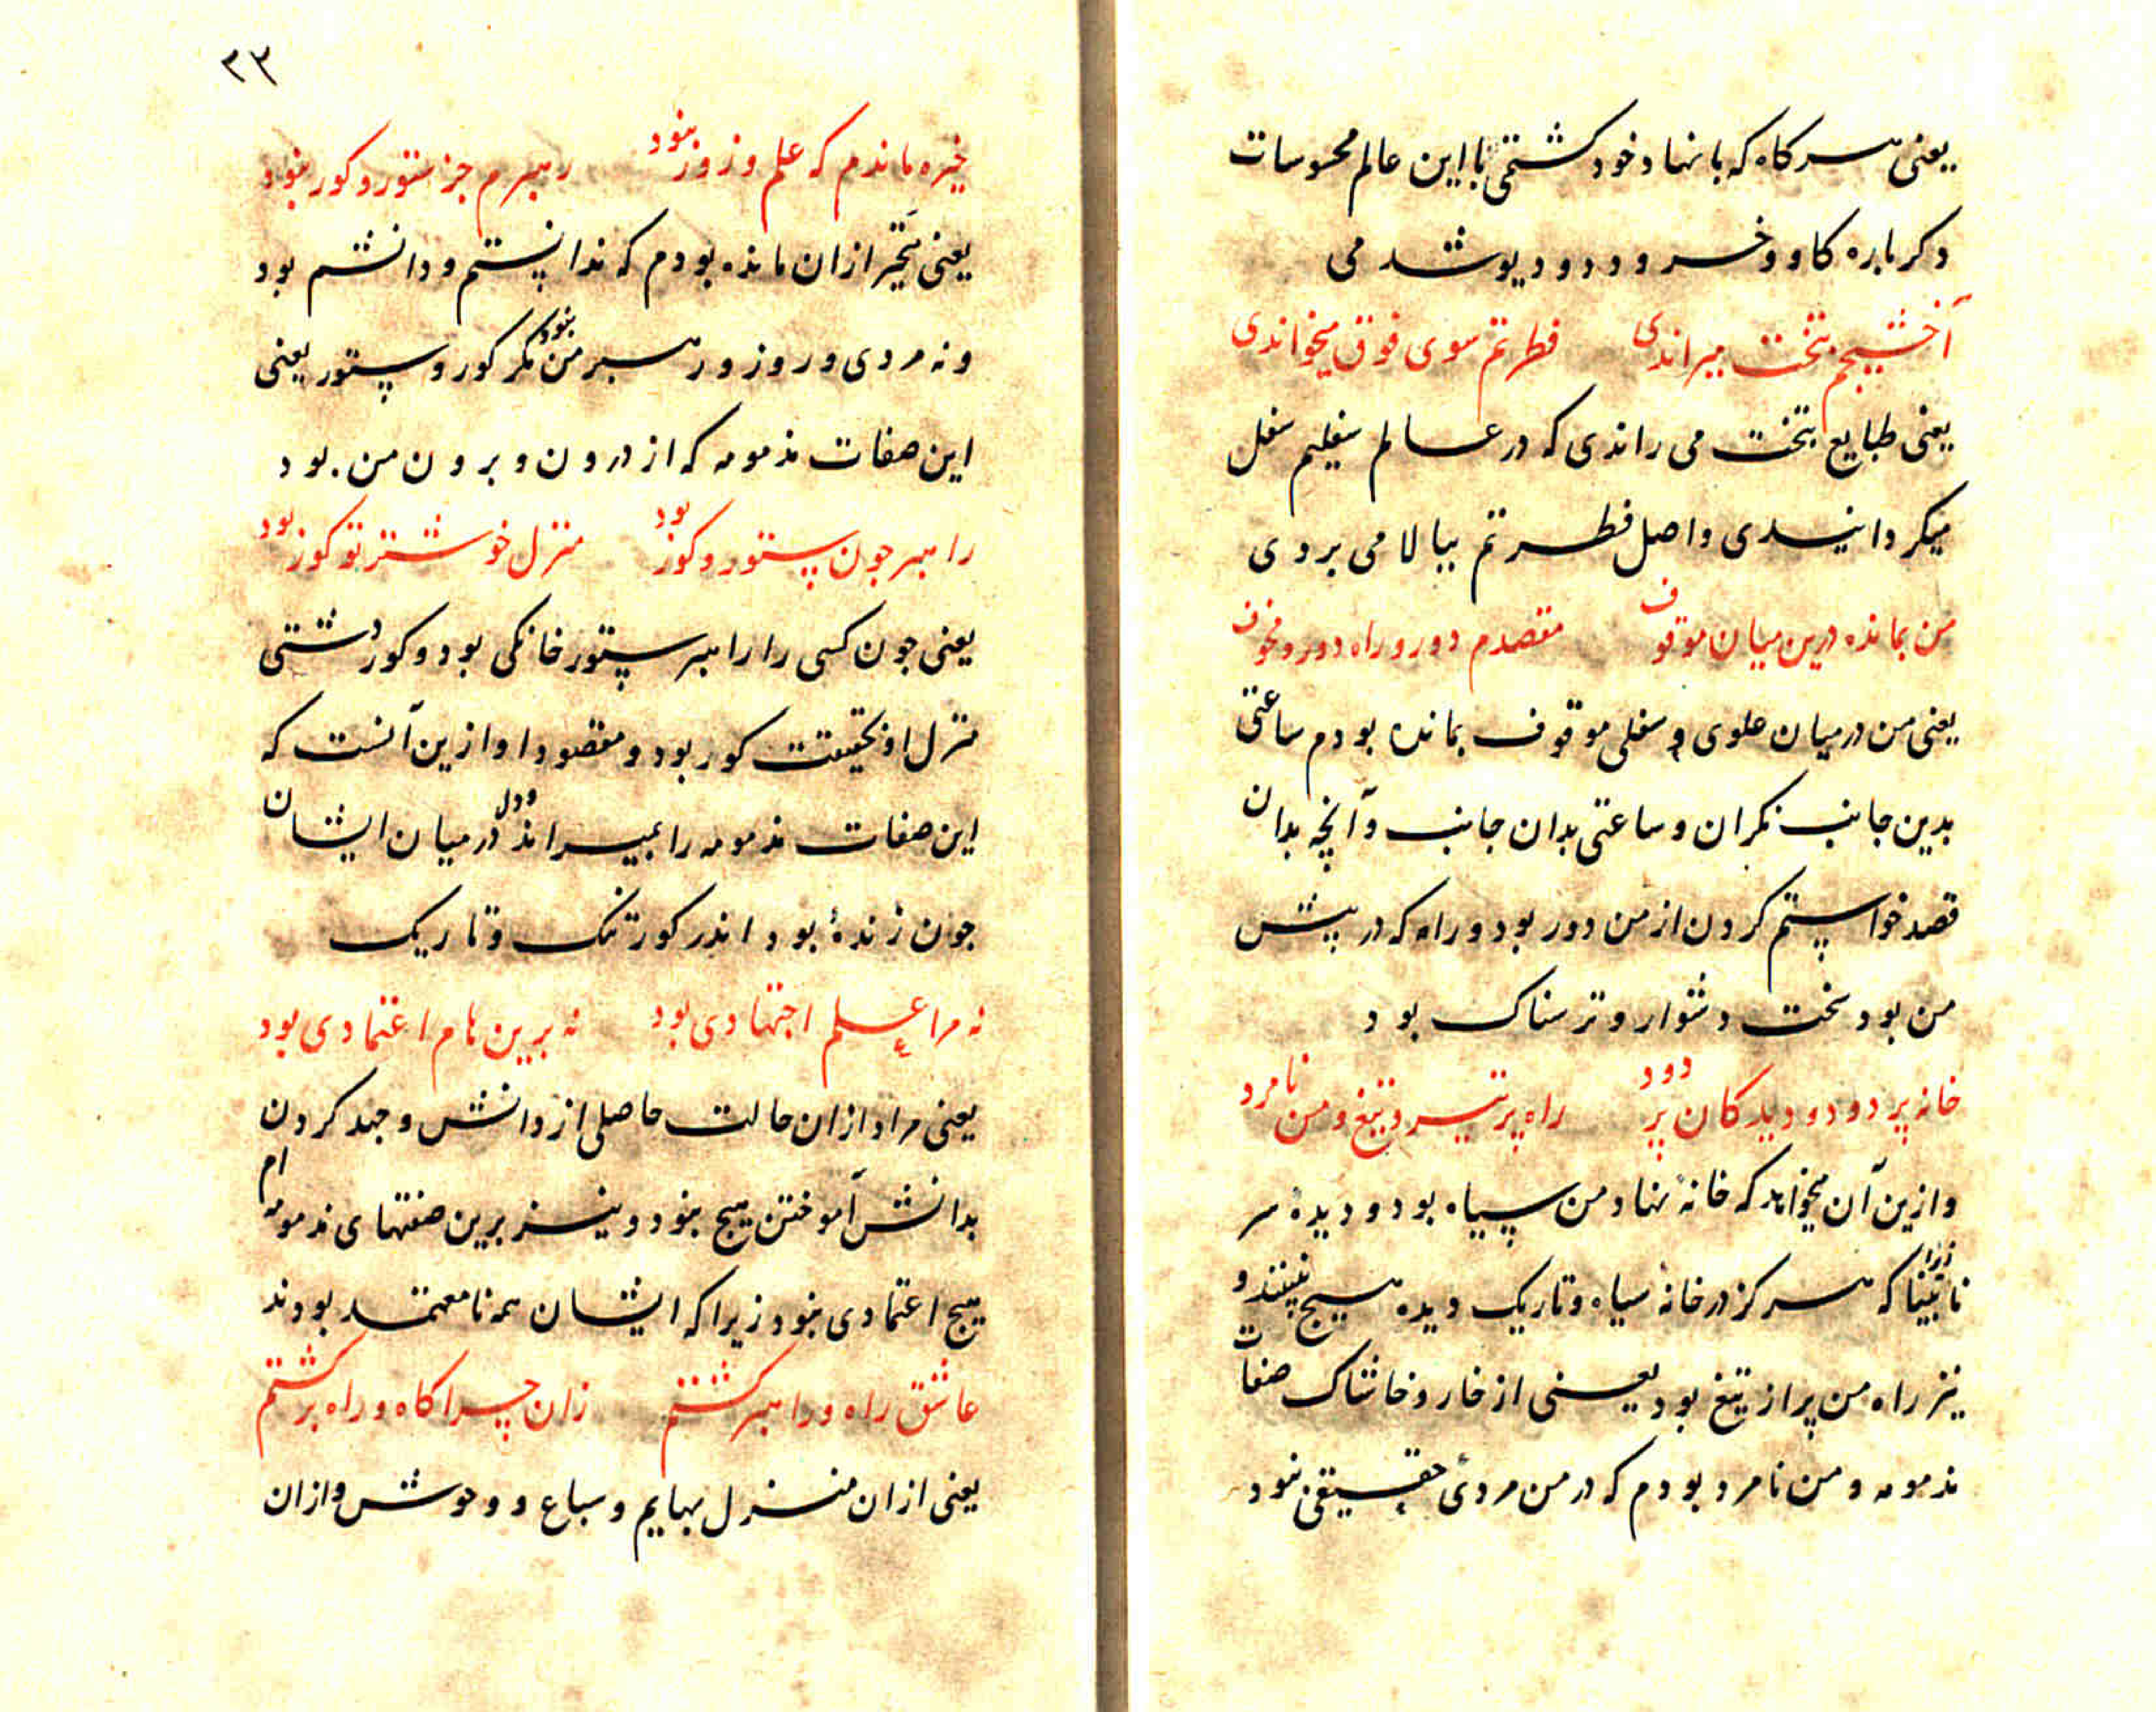 یعنی هر کاه که با نهاد خود کشتمی با این عالم محسوسات
دکرباره کاو و خر و دد و دیو شدمی
آخشیجم بتخت میراندی فطرتم سوی فوق میخواندی
یعنی طبایع بتخت می راندی که در عالم سفلیم سفل
میکردانیدی واصل فطرتم ببالا می بردی
من بمانده درین میان موقوف مقصدم دور و راه دور و مخوف
یعنی من در میان علوی و سفلی موقوف بمانده بودم ساعتی
بدین جانب نکران و ساعتی بدان جانب و آنچه بدان
قصد خواستم کردن از من دور بود و راه که در پیش
من بود سخت دشوار و ترسناک بود
خانه پر دود و دیدکان پر دود راه پر تیر و تیغ و من نامرد
و ازین آن میخواهد که خانهٔ نهاد من سیاه بود و دیدهٔ سر
نابینا زیرا که هرکز در خانهٔ سیاه و تاریک دیده هیچ نبیند و
نیز راه من پر از تیغ بود یعنی از خار و خاشاک صفات
مذمومه و من نامرد بودم که در من مردی حقیقی نبود
۳۳
خیره ماندم که علم و زور نبود رهبرم جز ستور و کور نبود
یعنی متحیر ازان مانده بودم که ندانستم و دانشم بود
و نه مردی و روز و رهبر من نبود مکر کور و ستور یعنی
این صفات مذمومه که از درون و برون من بود
راهبر جون ستور و کور بود منزل خوشتر تو کور بود
یعنی جون کسی را راهبر ستور خانکی بود و کور دشتی
منزل او بحقیقت کور بود و مقصود او ازین آنست که
این صفات مذمومه را بمیراند و دل در میان ایشان
جون زندهٔ بود اندر کور تنک و تاریک
نه مرا علم اجتهادی بود نه برین هام اعتمادی بود
یعنی مرا دازان حالت حاصلی از دانش و جهد کردن
بدانش آموختن هیچ نبود و نیز برین صفتهای مذمومه ام
هیچ اعتمادی نبود زیرا که ایشان همه نامعتمد بودند
عاشق راه و راهبر کشتم زان چراکاه و راه برکشتم
یعنی ازان منزل بهایم و سباع و وحوش و ازان